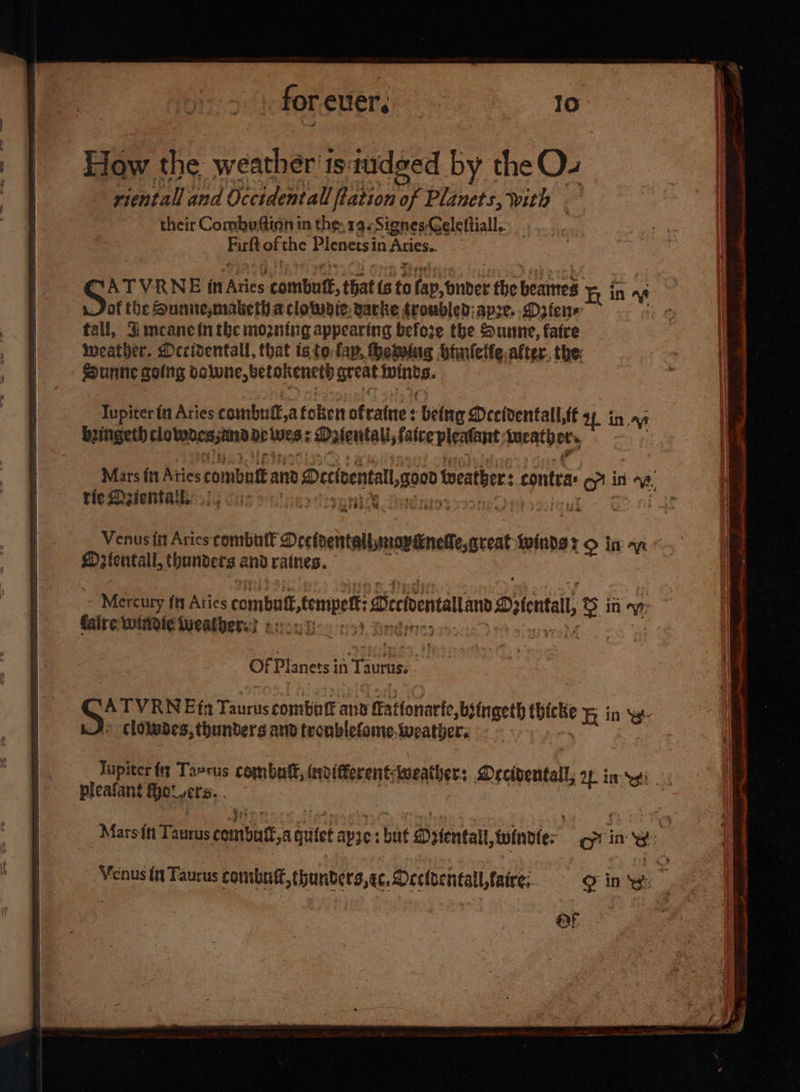 for euer. 10
How the weather is iudged by the O-
rientall and Occidentall station of Planets, with
their Combustion in the 12. Signes Celestiall.
First of the Plenets in Aries.
SATVRNE in Aries combust, that is to say, vnder the beames ♄ in ♈
of the Sunne, maketh a clowdie, darke troubled ayre. Orien-
tall, I meane in the morning appearing before the Sunne, faire
weather. Occidentall, that is to say, shewing himselfe after the
Sunne going downe, betokeneth great winds.
Iupiter in Aries combust, a token of raine: being Occidentall, it ♃ in ♈
bringeth clowdes, and dewes: Orientall, faire pleasant weather.
Mars in Aries combust and Occidentall, good weather: contra- ♂ in ♈
rie Orientall.
Venus in Aries combust Occidentall, moystnesse, great winds: ♀ in ♈
Orientall, thunders and raines.
Mercury in Aries combust, tempest: Occidentall and Orientall, ☿ in ♈
faire windie weather.
Of Planets in Taurus.
SATVRNE in Taurus combust and stationarie, bringeth thicke ♄ in ♉
clowdes, thunders and troublesome weather.
Iupiter in Taurus combust, indifferent weather: Occidentall, ♃ in ♉
pleasant showers.
Mars in Taurus combust, a quiet ayre: but Orientall, windie. ♂ in ♉
Venus in Taurus combust, thunders, &c. Occidentall, faire. ♀ in ♉
Of